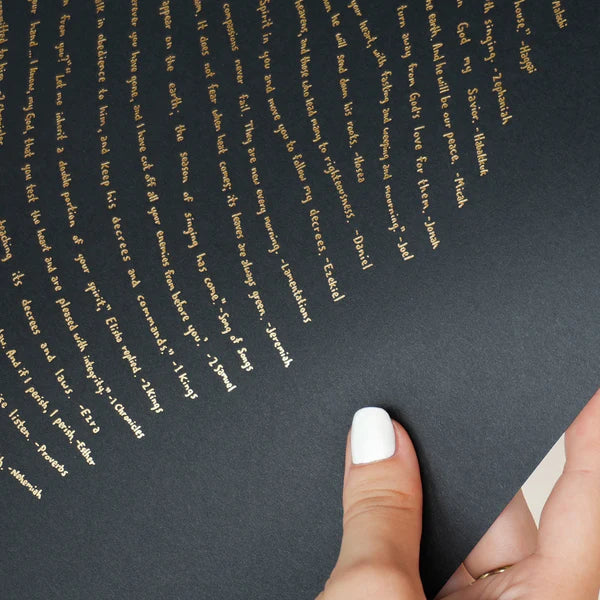 house." -Haggai
with singing. -Zephaniah
God my Savior. -Habakkuk
earth. And he will be our peace. -Micah
turn away from God's love for them. -Jonah
your heart, with fasting and weeping and mourning." -Joel
he will send down his roots. -Hosea
heavens, and those who lead many to righteousness -Daniel
Spirit in you and move you to follow my decrees. -Ezekiel
compassions never fail. They are new every morning -Lamentations
It does not fear when heat comes; its leaves are always green. -Jeremiah
appear on the earth; the season of singing has come." -Song of Songs
you have gone, and I have cut off all your enemies from before you." -2 Samuel
in obedience to him, and keep his decrees and commands." -1 Kings
from you?" "Let me inherit a double portion of your spirit," Elisha replied. -2 Kings
hand. I know, my God, that you test the heart and are pleased with integrity. -1 Chronicles
its decrees and laws. -Ezra
And if I perish, I perish. -Esther
listen. -Proverbs
-Nehemiah